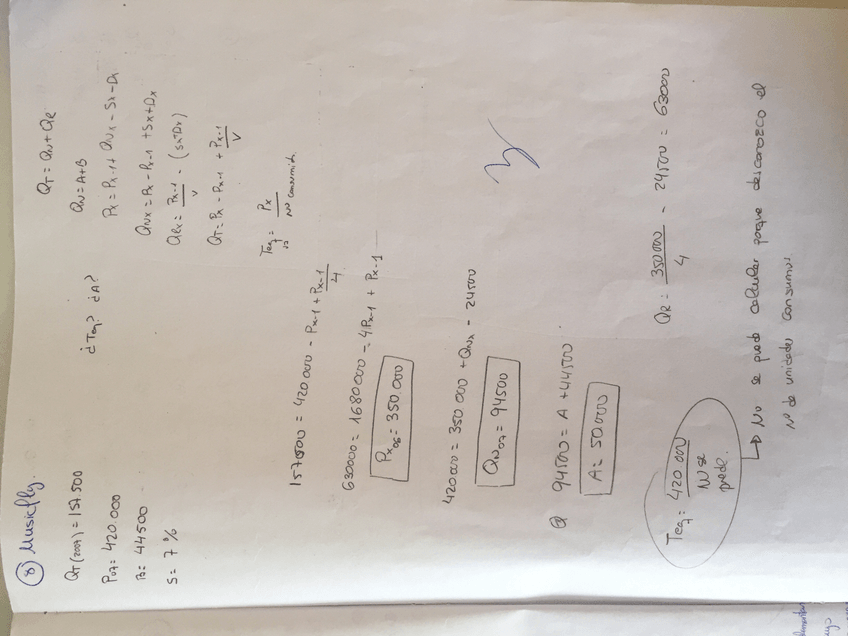 ⑧ Musicfly.
QT (2007) = 157.500
P07 = 420.000
B = 44500
S = 7 %
¿Teq? ¿A?
QT = QN + QR
QN = A+B
Px = Px-1 + QNx - Sx - Dx
QNx = Px - Px-1 + Sx + Dx
QRx = Px-1 / V - (Sx+Dx)
QT = Px - Px-1 + Px-1 / V
Teq = Px / Nº consumid.
157500 = 420000 - Px-1 + Px-1 / 4
630000 = 1680000 - 4Px-1 + Px-1
Px06 = 350.000
420000 = 350.000 + QNx - 24500
QN07 = 94500
94500 = A + 44500
A = 50.000
QR = 350000 / 4 - 24500 = 63000
Teq = 420 000 / No se puede.
↳ No se puede calcular porque desconozco el
Nº de unidades consumos.